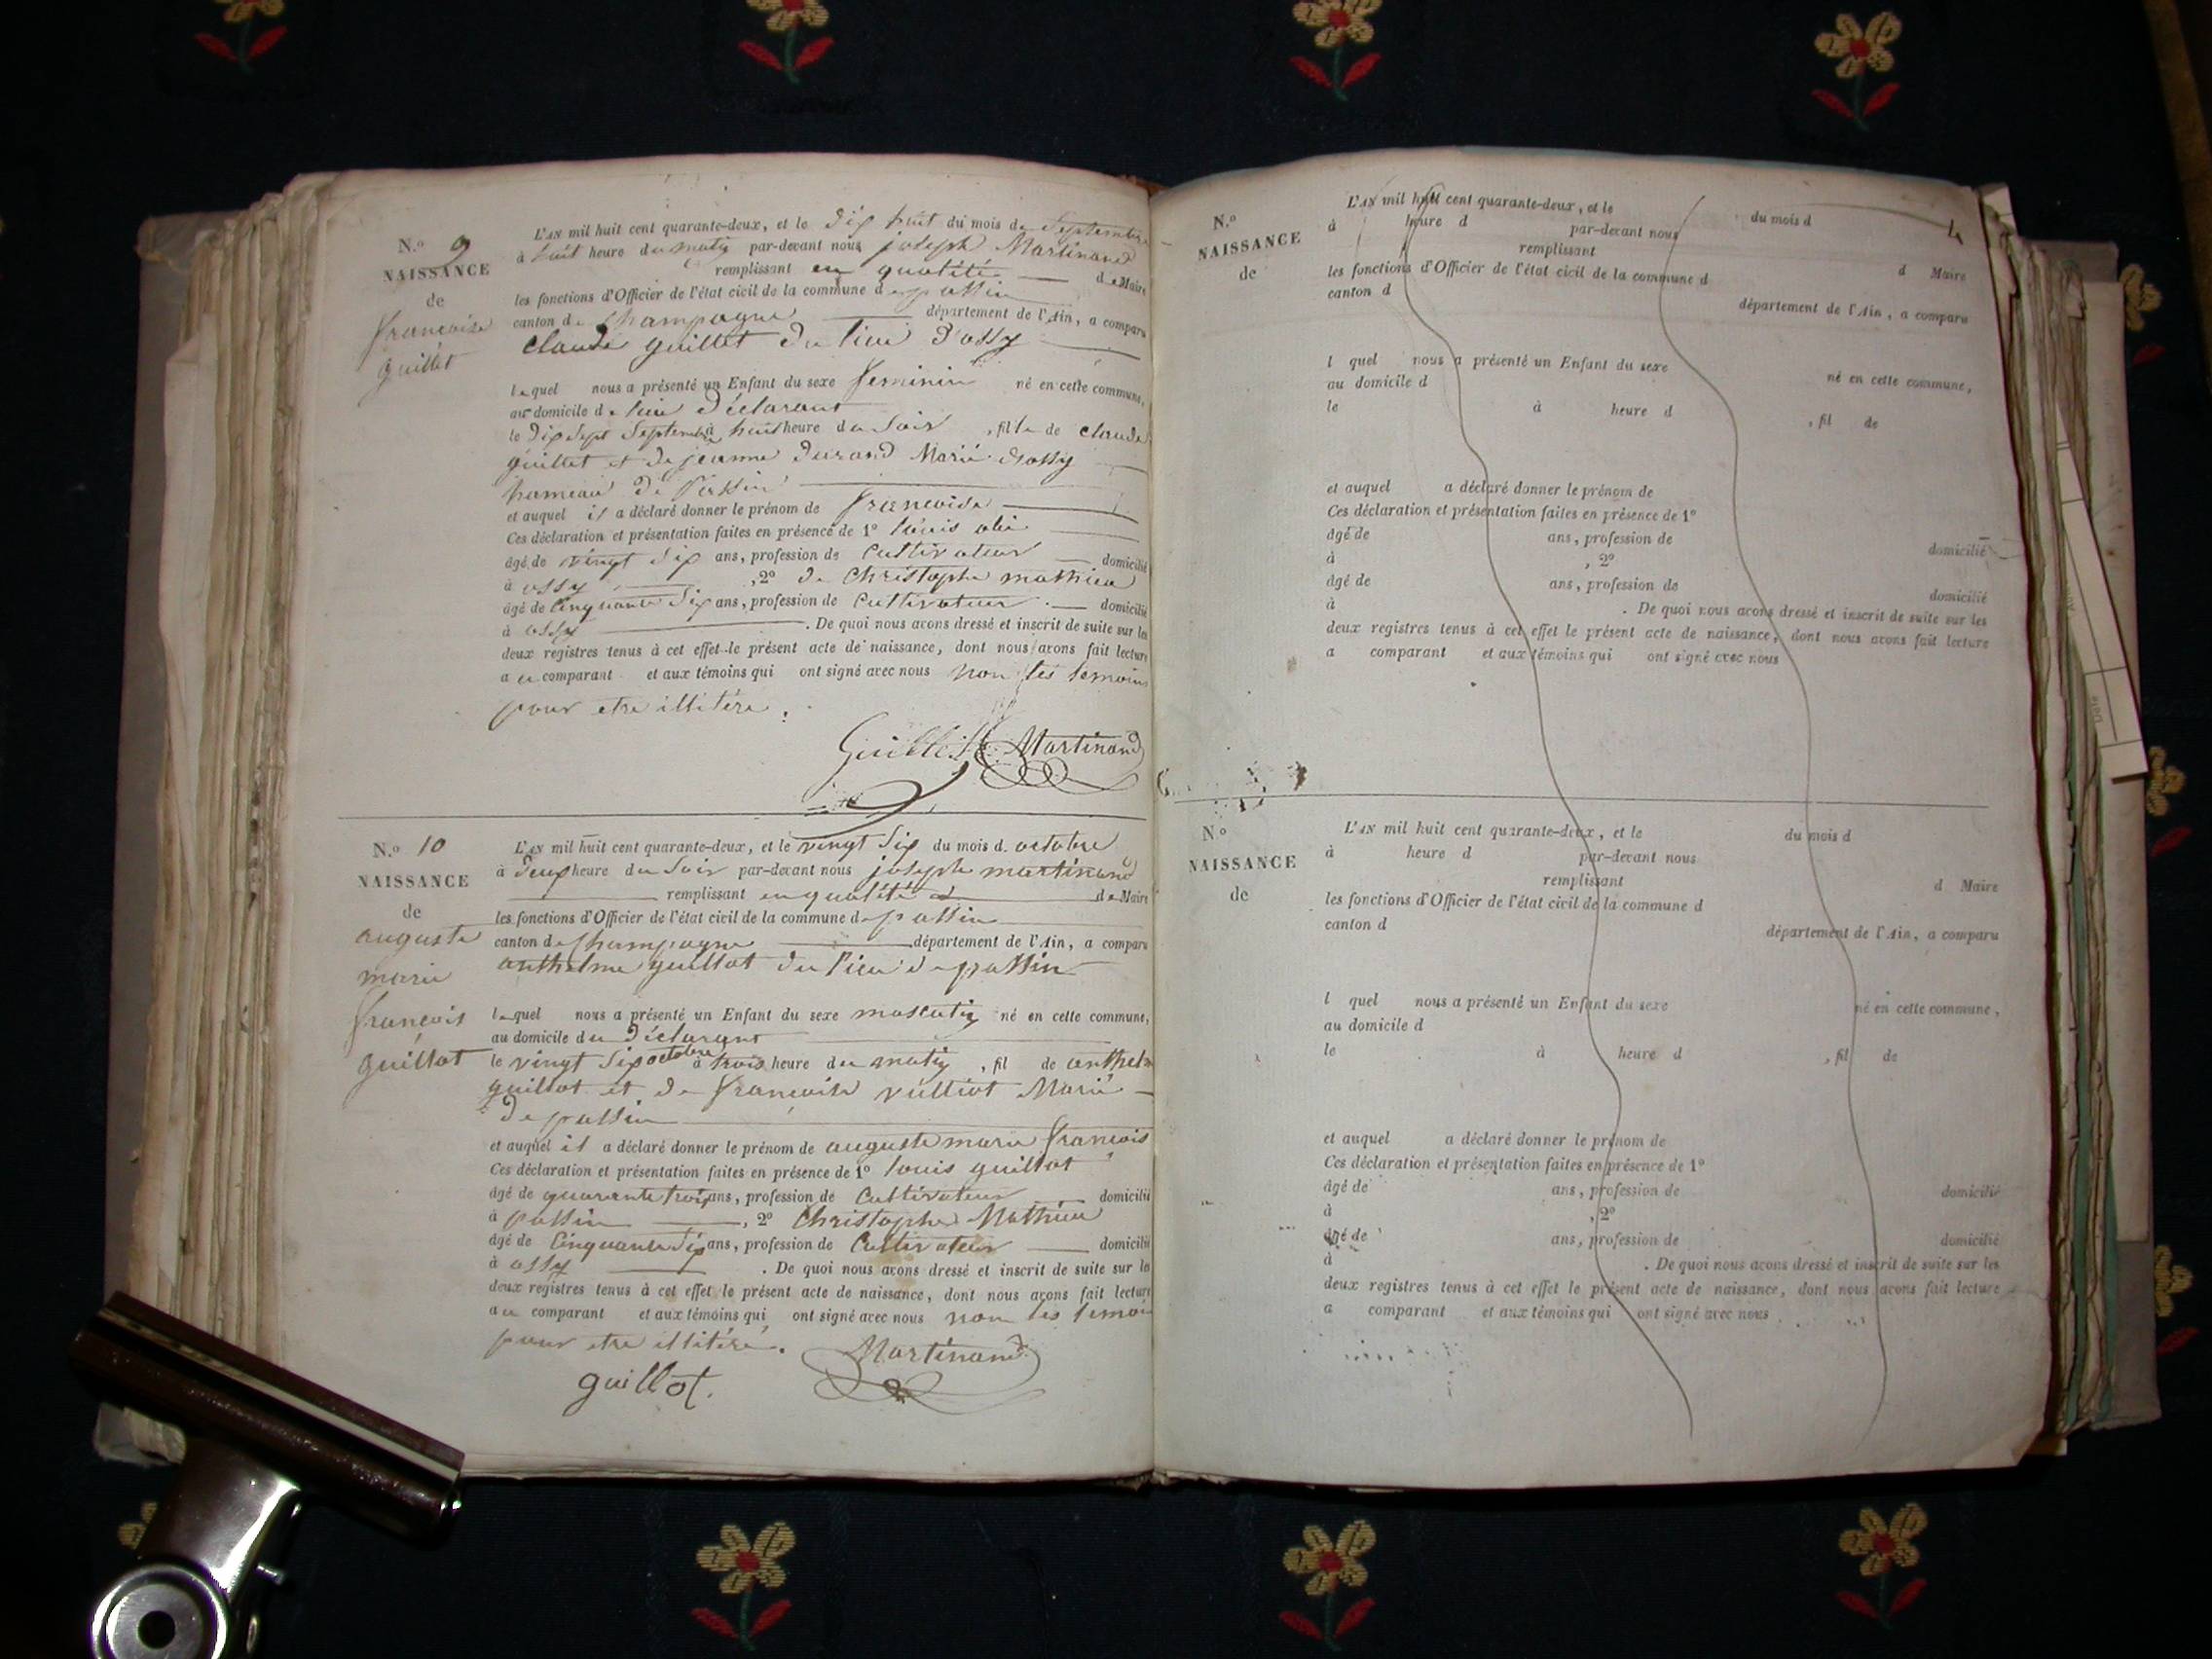 N.o 9
NAISSANCE
de
francoise
guillet
L'AN mil huit cent quarante-deux, et le dix huit du mois de Septembre
à huit heure du matin par-devant nous joseph Martinand
remplissant en qualité de Maire
les fonctions d'Officier de l'état civil de la commune de passin
canton de Champagne département de l'Ain, a comparu
Claude guillet du lieu d'ossy
lequel nous a présenté un Enfant du sexe feminin né en cette commune,
au domicile de lui déclarant
le dix Sept Septembre à huit heure du Soir , fille de claude
guillet et de jeanne durand Marié d'ossy
hameau de Passin
et auquel il a déclaré donner le prénom de francoise
Ces déclaration et présentation faites en présence de 1o louis
âgé de vingt Six ans, profession de Cultivateur domicilié
à ossy , 2o de Christophe mathieu
âgé de Cinquante Six ans, profession de Cultivateur domicilié
à ossy . De quoi nous avons dressé et inscrit de suite sur les
deux registres tenus à cet effet le présent acte de naissance, dont nous avons fait lecture
a u comparant et aux témoins qui ont signé avec nous non les temoins
pour etre illitéré.
Guillet Martinand
N.o 10
NAISSANCE
de
auguste
marie
francois
guillot
L'AN mil huit cent quarante-deux, et le vingt Six du mois d. octobre
à deux heure du Soir par-devant nous joseph martinand
remplissant en qualité de Maire
les fonctions d'Officier de l'état civil de la commune de passin
canton de Champagne département de l'Ain, a comparu
anthelme guillot du lieu de passin
lequel nous a présenté un Enfant du sexe masculin né en cette commune,
au domicile du déclarant
le vingt Six octobre à trois heure du matin , fil de anthelm
guillot et de francoise vulliot Marié
de passin
et auquel il a déclaré donner le prénom de auguste marie francois
Ces déclaration et présentation faites en présence de 1o louis guillot
âgé de quarante trois ans, profession de Cultivateur domicilié
à passin , 2o Christophe Mathieu
âgé de Cinquante Six ans, profession de Cultivateur domicilié
à ossy . De quoi nous avons dressé et inscrit de suite sur les
deux registres tenus à cet effet le présent acte de naissance, dont nous avons fait lecture
au comparant et aux témoins qui ont signé avec nous non les temoi
pour etre illitéré.
Martinand
guillot.
N.o
NAISSANCE
de
L'AN mil huit cent quarante-deux, et le du mois d
à heure d par-devant nous
remplissant d Maire
les fonctions d'Officier de l'état civil de la commune d
canton d département de l'Ain, a comparu
l quel nous a présenté un Enfant du sexe né en cette commune,
au domicile d
le à heure d , fil de
et auquel a déclaré donner le prénom de
Ces déclaration et présentation faites en présence de 1o
âgé de ans, profession de domicilié
à , 2o
âgé de ans, profession de domicilié
à . De quoi nous avons dressé et inscrit de suite sur les
deux registres tenus à cet effet le présent acte de naissance, dont nous avons fait lecture
a comparant et aux témoins qui ont signé avec nous
N.o
NAISSANCE
de
L'AN mil huit cent quarante-deux, et le du mois d
à heure d par-devant nous
remplissant d Maire
les fonctions d'Officier de l'état civil de la commune d
canton d département de l'Ain, a comparu
l quel nous a présenté un Enfant du sexe né en cette commune,
au domicile d
le à heure d , fil de
et auquel a déclaré donner le prénom de
Ces déclaration et présentation faites en présence de 1o
âgé de ans, profession de domicilié
à , 2o
âgé de ans, profession de domicilié
à . De quoi nous avons dressé et inscrit de suite sur les
deux registres tenus à cet effet le présent acte de naissance, dont nous avons fait lecture
a comparant et aux témoins qui ont signé avec nous
Date